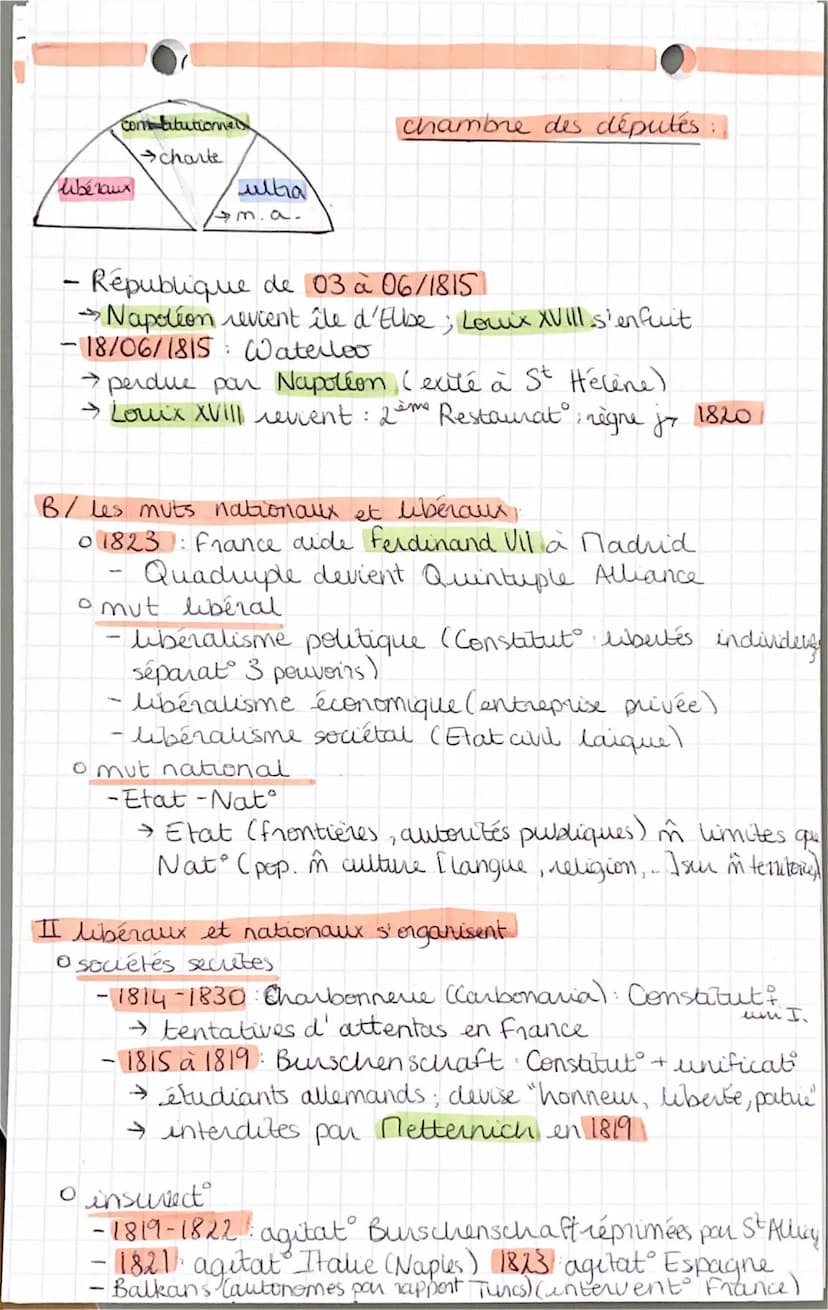 chambre des députés :
constitutionnels
→ charte
libéraux
ultra
→ m. a.
- République de 03 à 06/1815
→ Napoléon revient île d'Elbe ; Louix XVIII s'enfuit
- 18/06/1815 : Waterloo
→ perdue par Napoléon (exilé à St Hélène)
→ Louix XVIII revient : 2ème Restaurat° ; règne jq 1820
B/ les mvts nationaux et libéraux
o 1823 : France aide Ferdinand VII à Madrid
- Quadruple devient Quintuple Alliance
o mvt libéral
- libéralisme politique (Constitut° libertés
séparat° 3 pouvoirs)
- libéralisme économique (entreprise privée)
- libéralisme sociétal (Etat civil laïque)
o mvt national
- Etat - Nat°
→ Etat (frontières, autorités publiques) m̂ limites que
Nat° (pop. m̂ culture [langue, religion, ..] sur m̂ territoire)
II libéraux et nationaux s'organisent
o sociétés secrètes
- 1814 - 1830 : Charbonnerie (Carbonaria) : Constitut° +
uni I.
→ tentatives d'attentas en France
- 1815 à 1819 : Burschenschaft : Constitut° + unificat°
→ étudiants allemands ; devise "honneur, liberté, patrie"
→ interdites par Metternich en 1819
o insurrect°
- 1819-1822 : agitat° Burschenschaft réprimées par St
- 1821 : agitat° Italie (Naples) 1823 : agitat° Espagne
- Balkans (autonomes par rapport Turcs) (intervent° France)